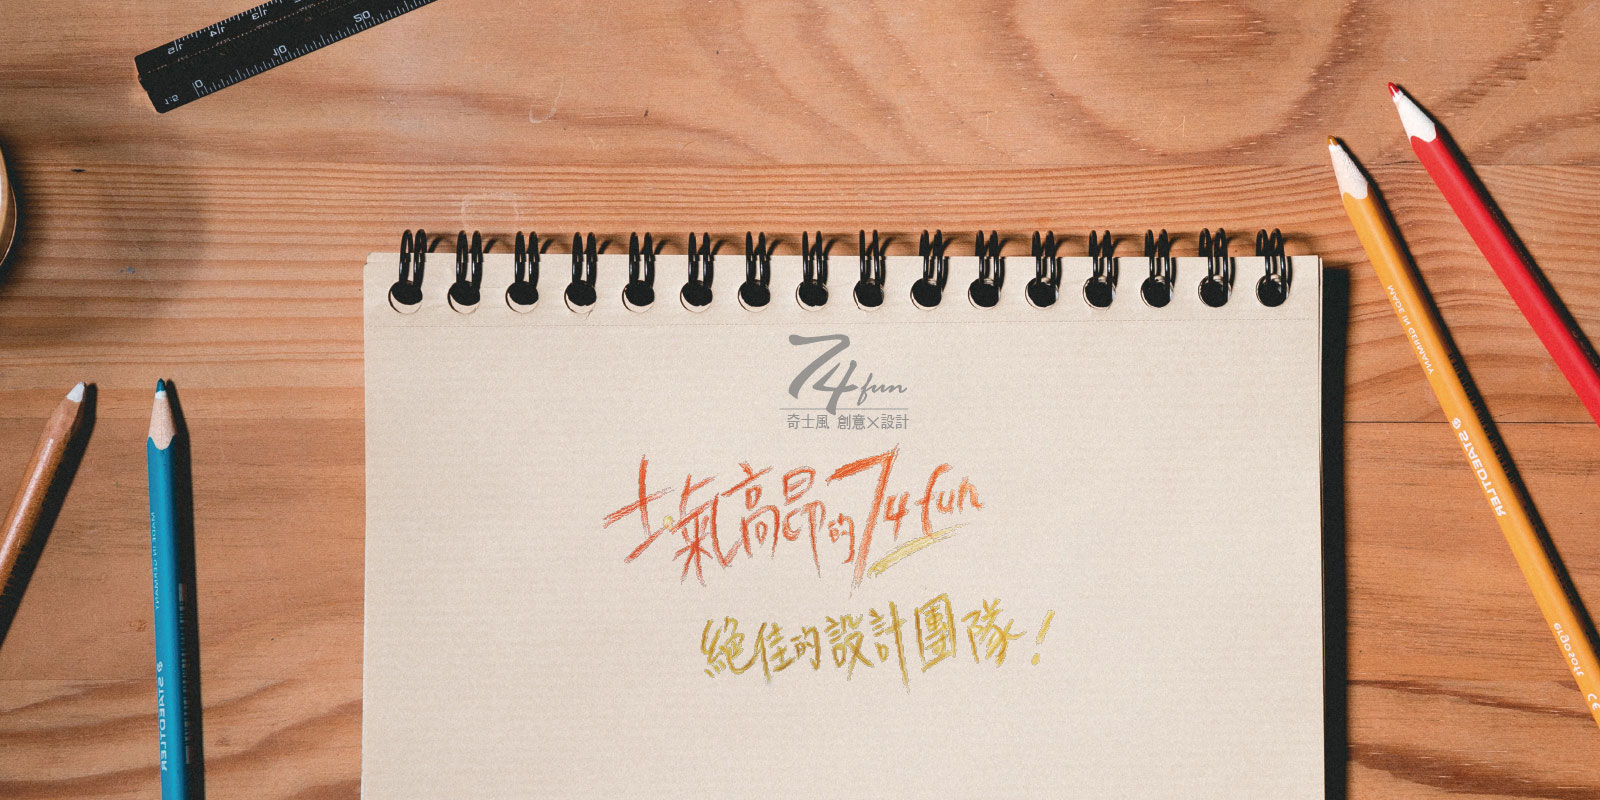 74fun
奇士風 創意×設計
士氣高昂的74fun
絕佳的設計團隊!
MADE IN GERMANY
STAEDTLER
MADE IN GERMANY
STAEDTLER